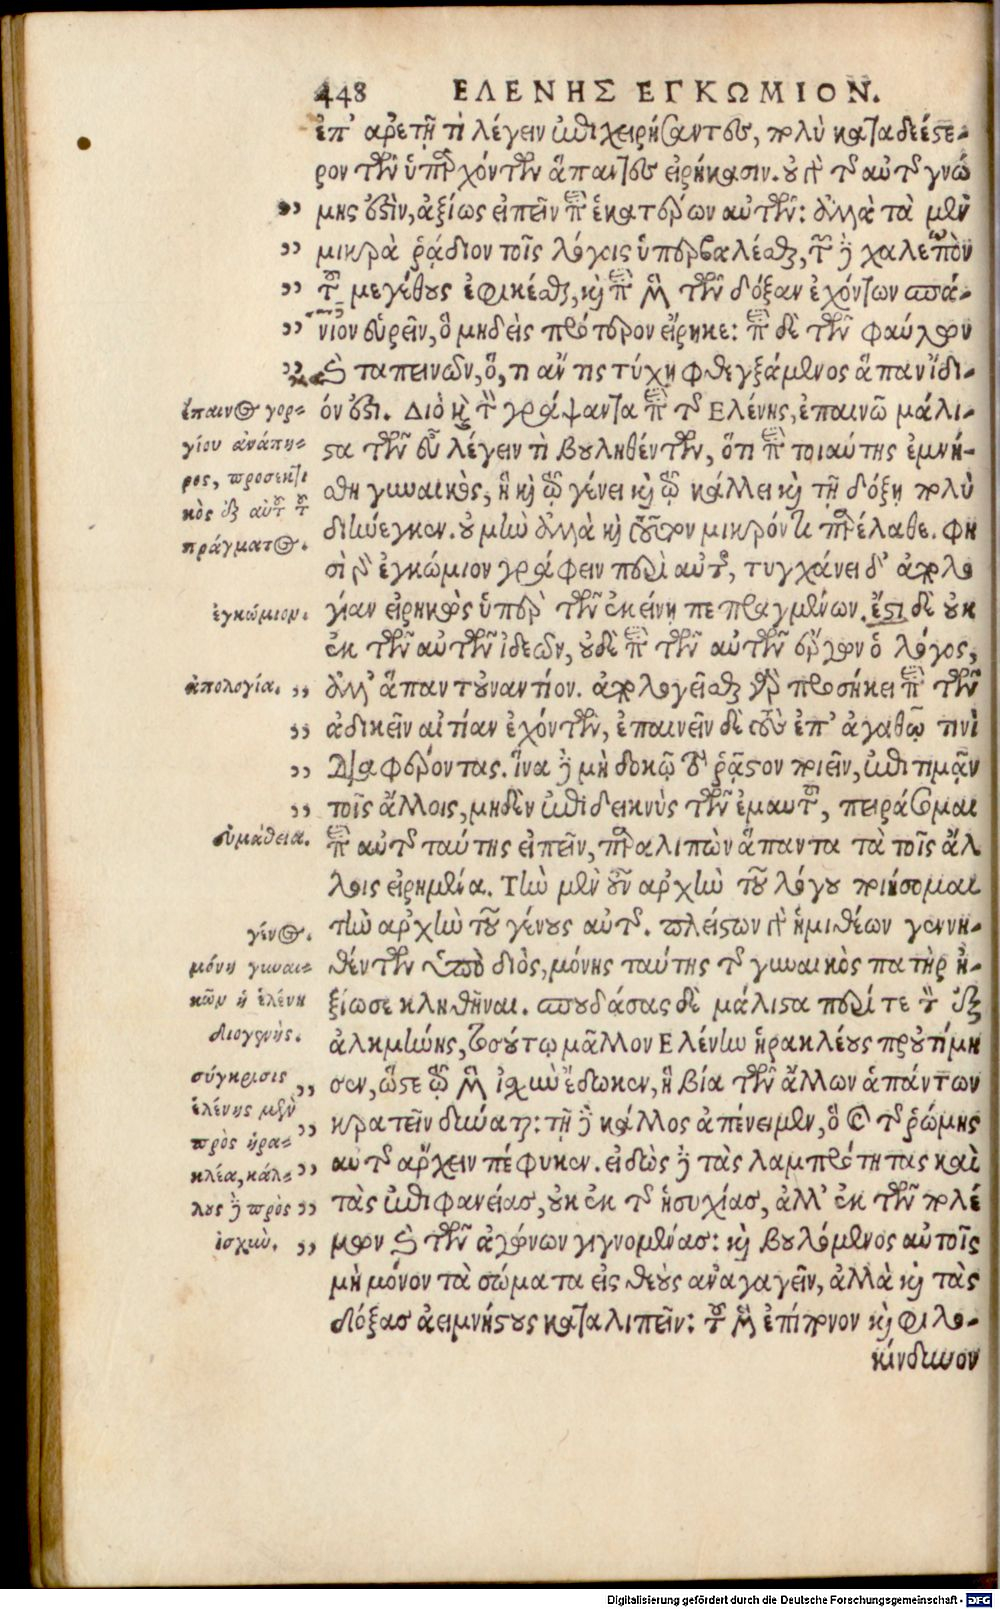 448 ΕΛΕΝΗΣ ΕΓΚΩΜΙΟΝ.
ἐπ' ἀρετῇ τὶ λέγειν ἐπιχειρήσαντες, πολὺ καταδεέστε-
ρον τῶν ὑπαρχόντων ἅπαντες εἰρήκασιν. οὐ γὰρ τῆς αὐτῆς γνώ
μης ἐστὶν, ἀξίως εἰπεῖν περὶ ἑκατέρων αὐτῶν: ἀλλὰ τὰ μὲν
μικρὰ ῥᾴδιον τοῖς λόγοις ὑπερβαλέσθαι, τῶν δὲ χαλεπὸν
τοῦ μεγέθους ἐφικέσθαι, καὶ περὶ μὲν τῶν δόξαν ἐχόντων σπά-
νιον εὑρεῖν, ὃ μηδεὶς πρότερον εἴρηκε: περὶ δὲ τῶν φαύλων
καὶ ταπεινῶν, ὅ, τι ἄν τις τύχῃ φθεγξάμενος ἅπαν ἴδι-
όν ἐστι. Διὸ καὶ τὸν γράψαντα περὶ τῆς Ελένης, ἐπαινῶ μάλι-
στα τῶν εὖ λέγειν τὶ βουληθέντων, ὅτι περὶ τοιαύτης ἐμνή-
σθη γυναικὸς, ἣ καὶ τῷ γένει καὶ τῷ κάλλει καὶ τῇ δόξῃ πολὺ
διήνεγκεν. οὐ μὴν ἀλλὰ καὶ τοῦτον μικρόν τι παρέλαθε. φη
σὶ μὲν ἐγκώμιον γράφειν περὶ αὐτῆς, τυγχάνει δ' ἀπολο
γίαν εἰρηκὼς ὑπὲρ τῶν ἐκείνῃ πεπραγμένων. ἔστι δὲ οὐκ
ἐκ τῶν αὐτῶν ἰδεῶν, οὐδὲ περὶ τῶν αὐτῶν ἔργων ὁ λόγος,
ἀλλ' ἅπαν τοὐναντίον. ἀπολογεῖσθαι μὲν γὰρ προσήκει περὶ τῶν
ἀδικεῖν αἰτίαν ἐχόντων, ἐπαινεῖν δὲ τοὺς ἐπ' ἀγαθῷ τινὶ
διαφέροντας. ἵνα δὲ μὴ δοκῶ τὸ ῥᾷστον ποιεῖν, ἐπιτιμᾷν
τοῖς ἄλλοις, μηδὲν ἐπιδεικνὺς τῶν ἐμαυτοῦ, πειράσομαι
περὶ αὐτῆς ταύτης εἰπεῖν, παραλιπὼν ἅπαντα τὰ τοῖς ἄλ
λοις εἰρημένα. Τὴν μὲν οὖν ἀρχὴν τοῦ λόγου ποιήσομαι
τὴν ἀρχὴν τοῦ γένους αὐτῆς. πλείστων γὰρ ἡμιθέων γεννη-
θέντων ὑπὸ διὸς, μόνης ταύτης τῆς γυναικὸς πατὴρ ἠ-
ξίωσε κληθῆναι. σπουδάσας δὲ μάλιστα περί τε τὸν ἐξ
ἀλκμήνης, τοσούτῳ μᾶλλον Ελένην ἡρακλέους προὐτίμη
σεν, ὥστε τῷ μὲν ἰσχὺν ἔδωκεν, ἣ βίᾳ τῶν ἄλλων ἁπάντων
κρατεῖν δύναται: τῇ δὲ κάλλος ἀπένειμεν, ὃ καὶ τῆς ῥώμης
αὐτῆς ἄρχειν πέφυκεν. εἰδὼς δὲ τὰς λαμπρότητας καὶ
τὰς ἐπιφανείας, οὐκ ἐκ τῆς ἡσυχίας, ἀλλ' ἐκ τῶν πολέ
μων καὶ τῶν ἀγώνων γιγνομένας: καὶ βουλόμενος αὐτοῖς
μὴ μόνον τὰ σώματα εἰς θεοὺς ἀναγαγεῖν, ἀλλὰ καὶ τὰς
δόξας ἀειμνήστους καταλιπεῖν: τοῦ μὲν ἐπίπονον καὶ φιλο-
κίνδυνον
ἔπαινος γορ-
γίου ἀνάπη-
ρος, προσεκτι
κὸς ἐξ αὐτοῦ τοῦ
πράγματος.
ἐγκώμιον.
ἀπολογία.
εὐμάθεια.
γένος.
μόνη γυναι-
κῶν ἡ ἑλένη
διογενής.
σύγκρισις
ἑλένης μὲν
πρὸς ἡρα-
κλέα, κάλ-
λους δὲ πρὸς
ἰσχύν.
Digitalisierung gefördert durch die Deutsche Forschungsgemeinschaft - DFG